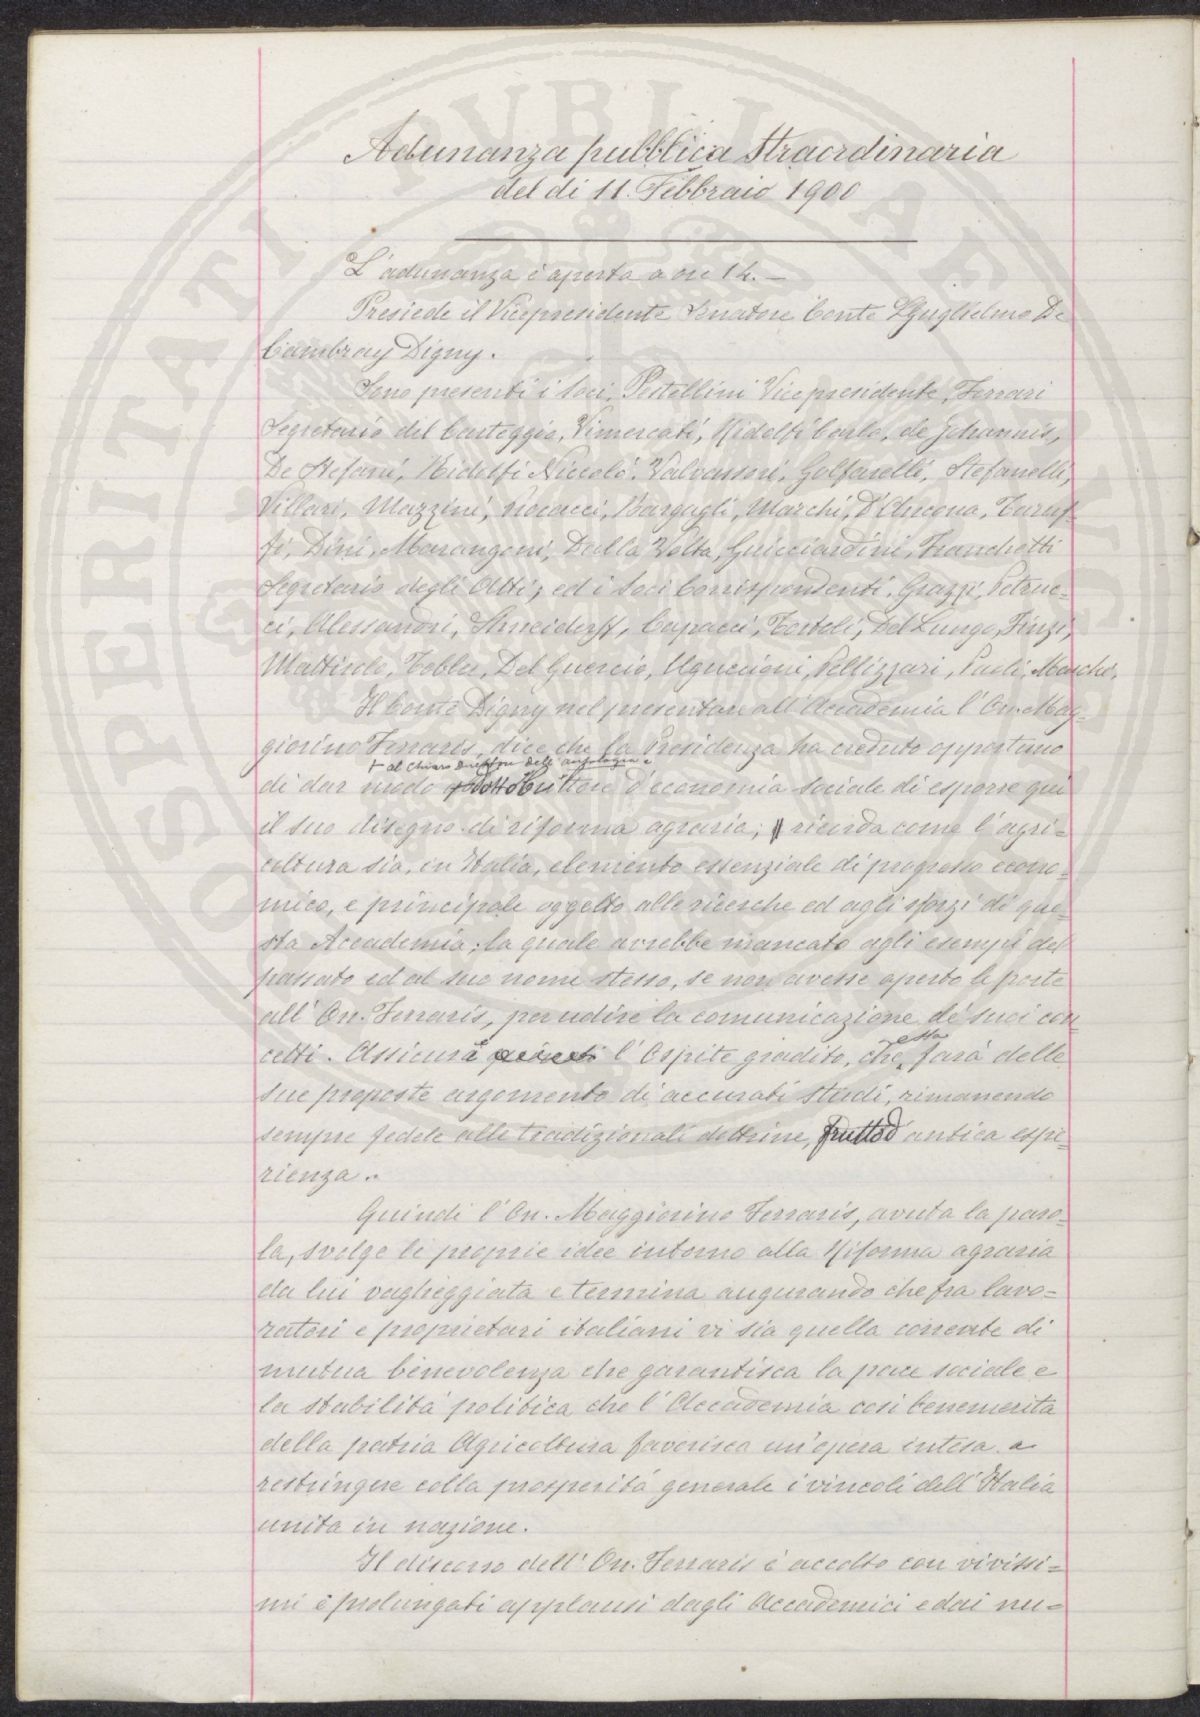 Adunanza pubblica straordinaria
del dì 11. Febbraio 1900
L'adunanza è aperta a ore 14. —
Presiede il Vicepresidente Senatore Conte Guglielmo De
Cambray Digny.
Sono presenti i Soci, Pestellini Vicepresidente, Ferrari
Segretario del Carteggio, Vimercati, Ridolfi Carlo, de Johannis,
De Stefani, Ridolfi Niccolò, Valvassori, Golfarelli, Stefanelli,
Villari, Mazzini, Bargagli, Marchi, D'Ancona, Taruf-
fi, Dini, Marangoni, Dalla Volta, Guicciardini, Franchetti
Segretario degli Atti; ed i Soci Corrispondenti, Grazzi, Petruc-
ci, Alessandri, Capacci, Tortoli, Del Lungo, Finzi,
Mattirolo, Tobler, Del Guercio, Uguccioni, Pellizzari, Paoli, Marchi.
Il Conte Digny nel presentare all'Accademia l'On. Mag-
giorino Ferraris, dice che la Presidenza ha creduto opportuno
+ al chiaro Direttore dell'antologia e
di dar modo scrittore d'economia sociale di esporre qui
il suo disegno di riforma agraria; ricorda come l'agri-
coltura sia, in Italia, elemento essenziale di progresso econo-
mico, e principale oggetto alle ricerche ed agli sforzi di que-
sta Accademia; la quale avrebbe mancato agli esempi del
passato ed al suo nome stesso, se non avesse aperto le porte
all'On. Ferraris, per udire la comunicazione de' suoi con-
essa
cetti. Assicura l'Ospite gradito, che farà delle
sue proposte argomento di accurati studi, rimanendo
sempre fedele alle tradizionali dottrine, frutto d'antica espe-
rienza.
Quindi l'On. Maggiorino Ferraris, avuta la paro-
la, svolge le proprie idee intorno alla Riforma agraria
da lui vagheggiata e termina augurando che fra lavo-
ratori e proprietari italiani vi sia quella corrente di
mutua benevolenza che garantisca la pace sociale e
la stabilità politica che l'Accademia così benemerita
della patria Agricoltura favorisca un'opera intesa a
restringere colla prosperità generale i vincoli dell'Italia
unita in nazione.
Il discorso dell'On. Ferraris è accolto con vivissi-
mi e prolungati applausi dagli Accademici e dai nu-
OSPERITATI PUBLICAE